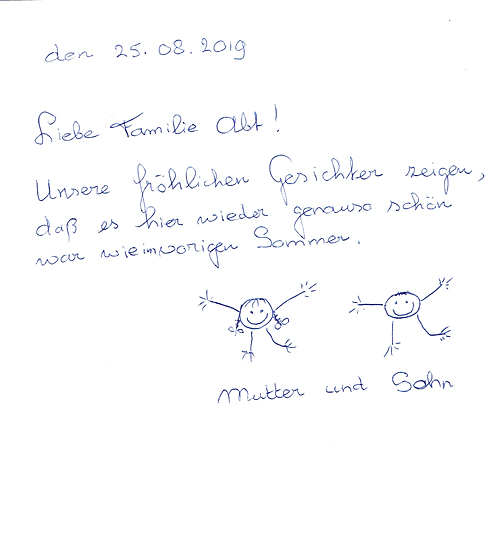 den 25.08.2019
Liebe Familie Abt!
Unsere fröhlichen Gesichter zeigen,
daß es hier wieder genauso schön
war wie im vorigen Sommer.
Mutter und Sohn